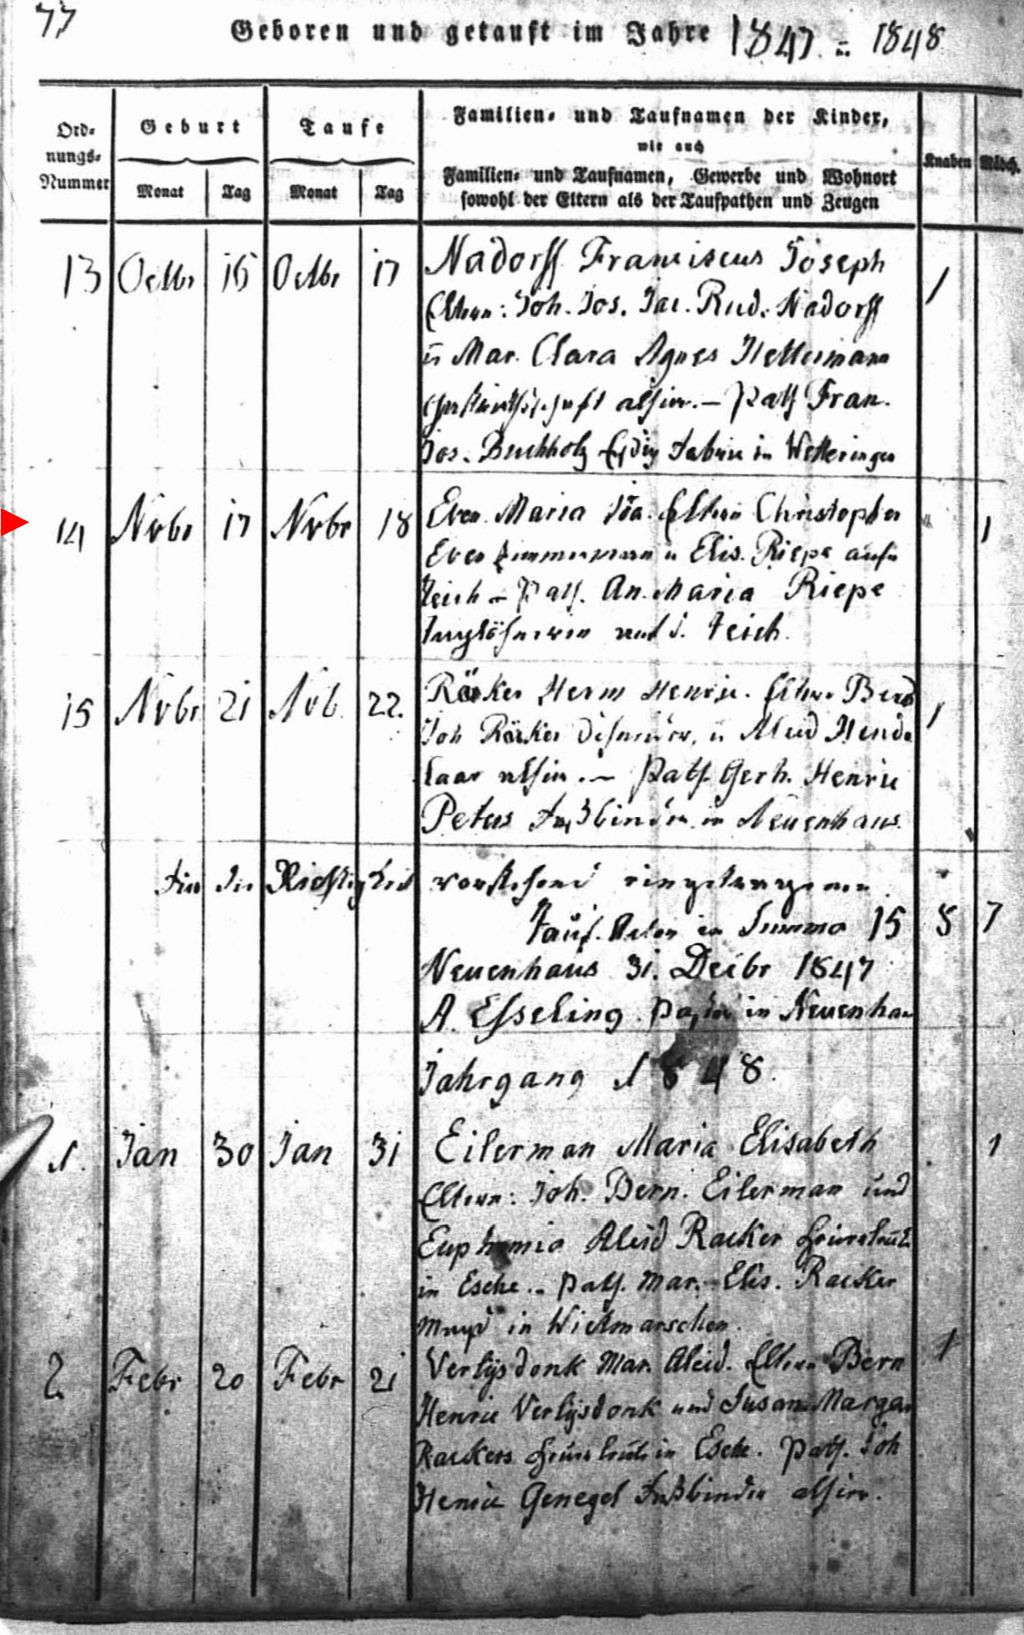 77
Geboren und getauft im Jahre 1847 = 1848
Ord-
nungs-
Nummer
Geburt
Monat
Tag
Taufe
Monat
Tag
Familien- und Taufnamen der Kinder,
wie auch
Familien- und Taufnamen, Gewerbe und Wohnort
sowohl der Eltern als der Taufpathen und Zeugen
Knaben
Mädch.
13 Octbr 16 Octbr 17 Nadorff Franciscus Joseph 1
Eltern: Joh. Jos. Jac. Rud. Nadorff
u Mar. Clara Agnes Hellermann
alhier. – Path Fran.
Jos. Buchholz in Wetteringen
14 Nvbr 17 Nvbr 18 Evers Maria Eltern Christopher 1
Evers Zimmermann u Elis. Riepe aufn
Teich – Path. An. Maria Riepe
Teich.
15 Nvbr 21 Nvb. 22. Räker Herm Henric. Eltern Bernd 1
Joh Räker u Aleid
alhier. – Path. Gerh. Henric
Peters Faßbinder in Neuenhaus.
für die Richtigkeit vorstehend eingetragenen
Tauf-Acten in Summa 15 8 7
Neuenhaus 31. Decbr 1847
A. Esseling Pastor in Neuenhaus
Jahrgang 1848.
1. Jan 30 Jan 31 Eilerman Maria Elisabeth 1
Eltern: Joh. Bern. Eilerman und
Euphemia Aleid Racker Heuerleute
in Esche. – Path. Mar. Elis. Racker
Magd in Wietmarschen.
2 Febr 20 Febr 21 Verlijsdonk Mar. Aleid. Eltern Bern 1
Henric Verlijsdonk und Susan. Margar
Rackers Heuerleute in Esche. Path. Joh
Henric Genegel Faßbinder alhier.